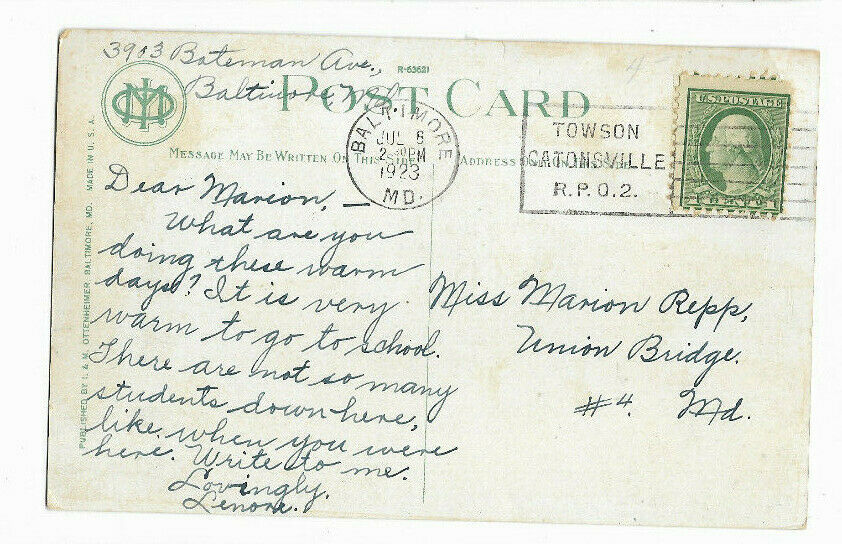 3903 Bateman Ave.,
Baltimore, Md.
R-63621
POST CARD
MESSAGE MAY BE WRITTEN ON THIS SIDE
ADDRESS
BALTIMORE
JUL 6
2 PM
1923
MD.
TOWSON
CATONSVILLE
R.P.O. 2.
U.S. POSTAGE
PUBLISHED BY I. & M. OTTENHEIMER, BALTIMORE, MD. MADE IN U.S.A.
Dear Marion, —
What are you
doing these warm
days? It is very
warm to go to school.
There are not so many
students down here,
like when you were
here. Write to me.
Lovingly.
Lenore.
Miss Marion Repp,
Union Bridge.
#4. Md.
4-